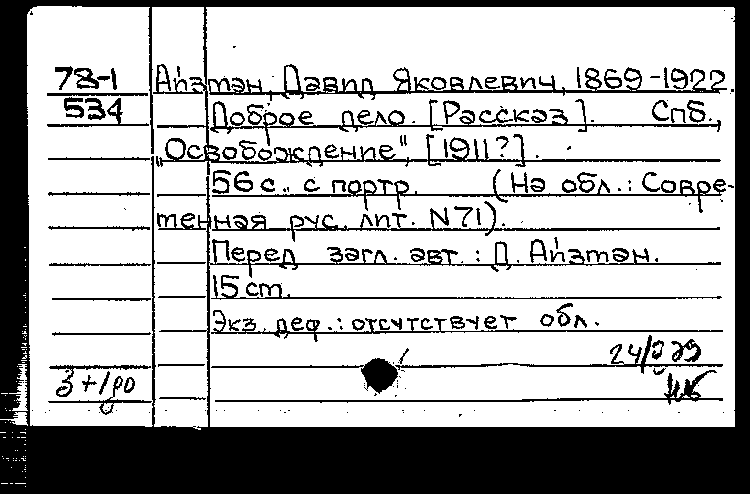 78-1 Айзман, Давид Яковлевич, 1869-1922.
534 Доброе дело. [Рассказ]. Спб.,
„Освобождение", [1911?].
56 с., с портр. (На обл.: Совре-
менная рус. лит. N71).
Перед загл. авт.: Д. Айзман.
15 cm.
Экз. деф.: отсутствует обл.